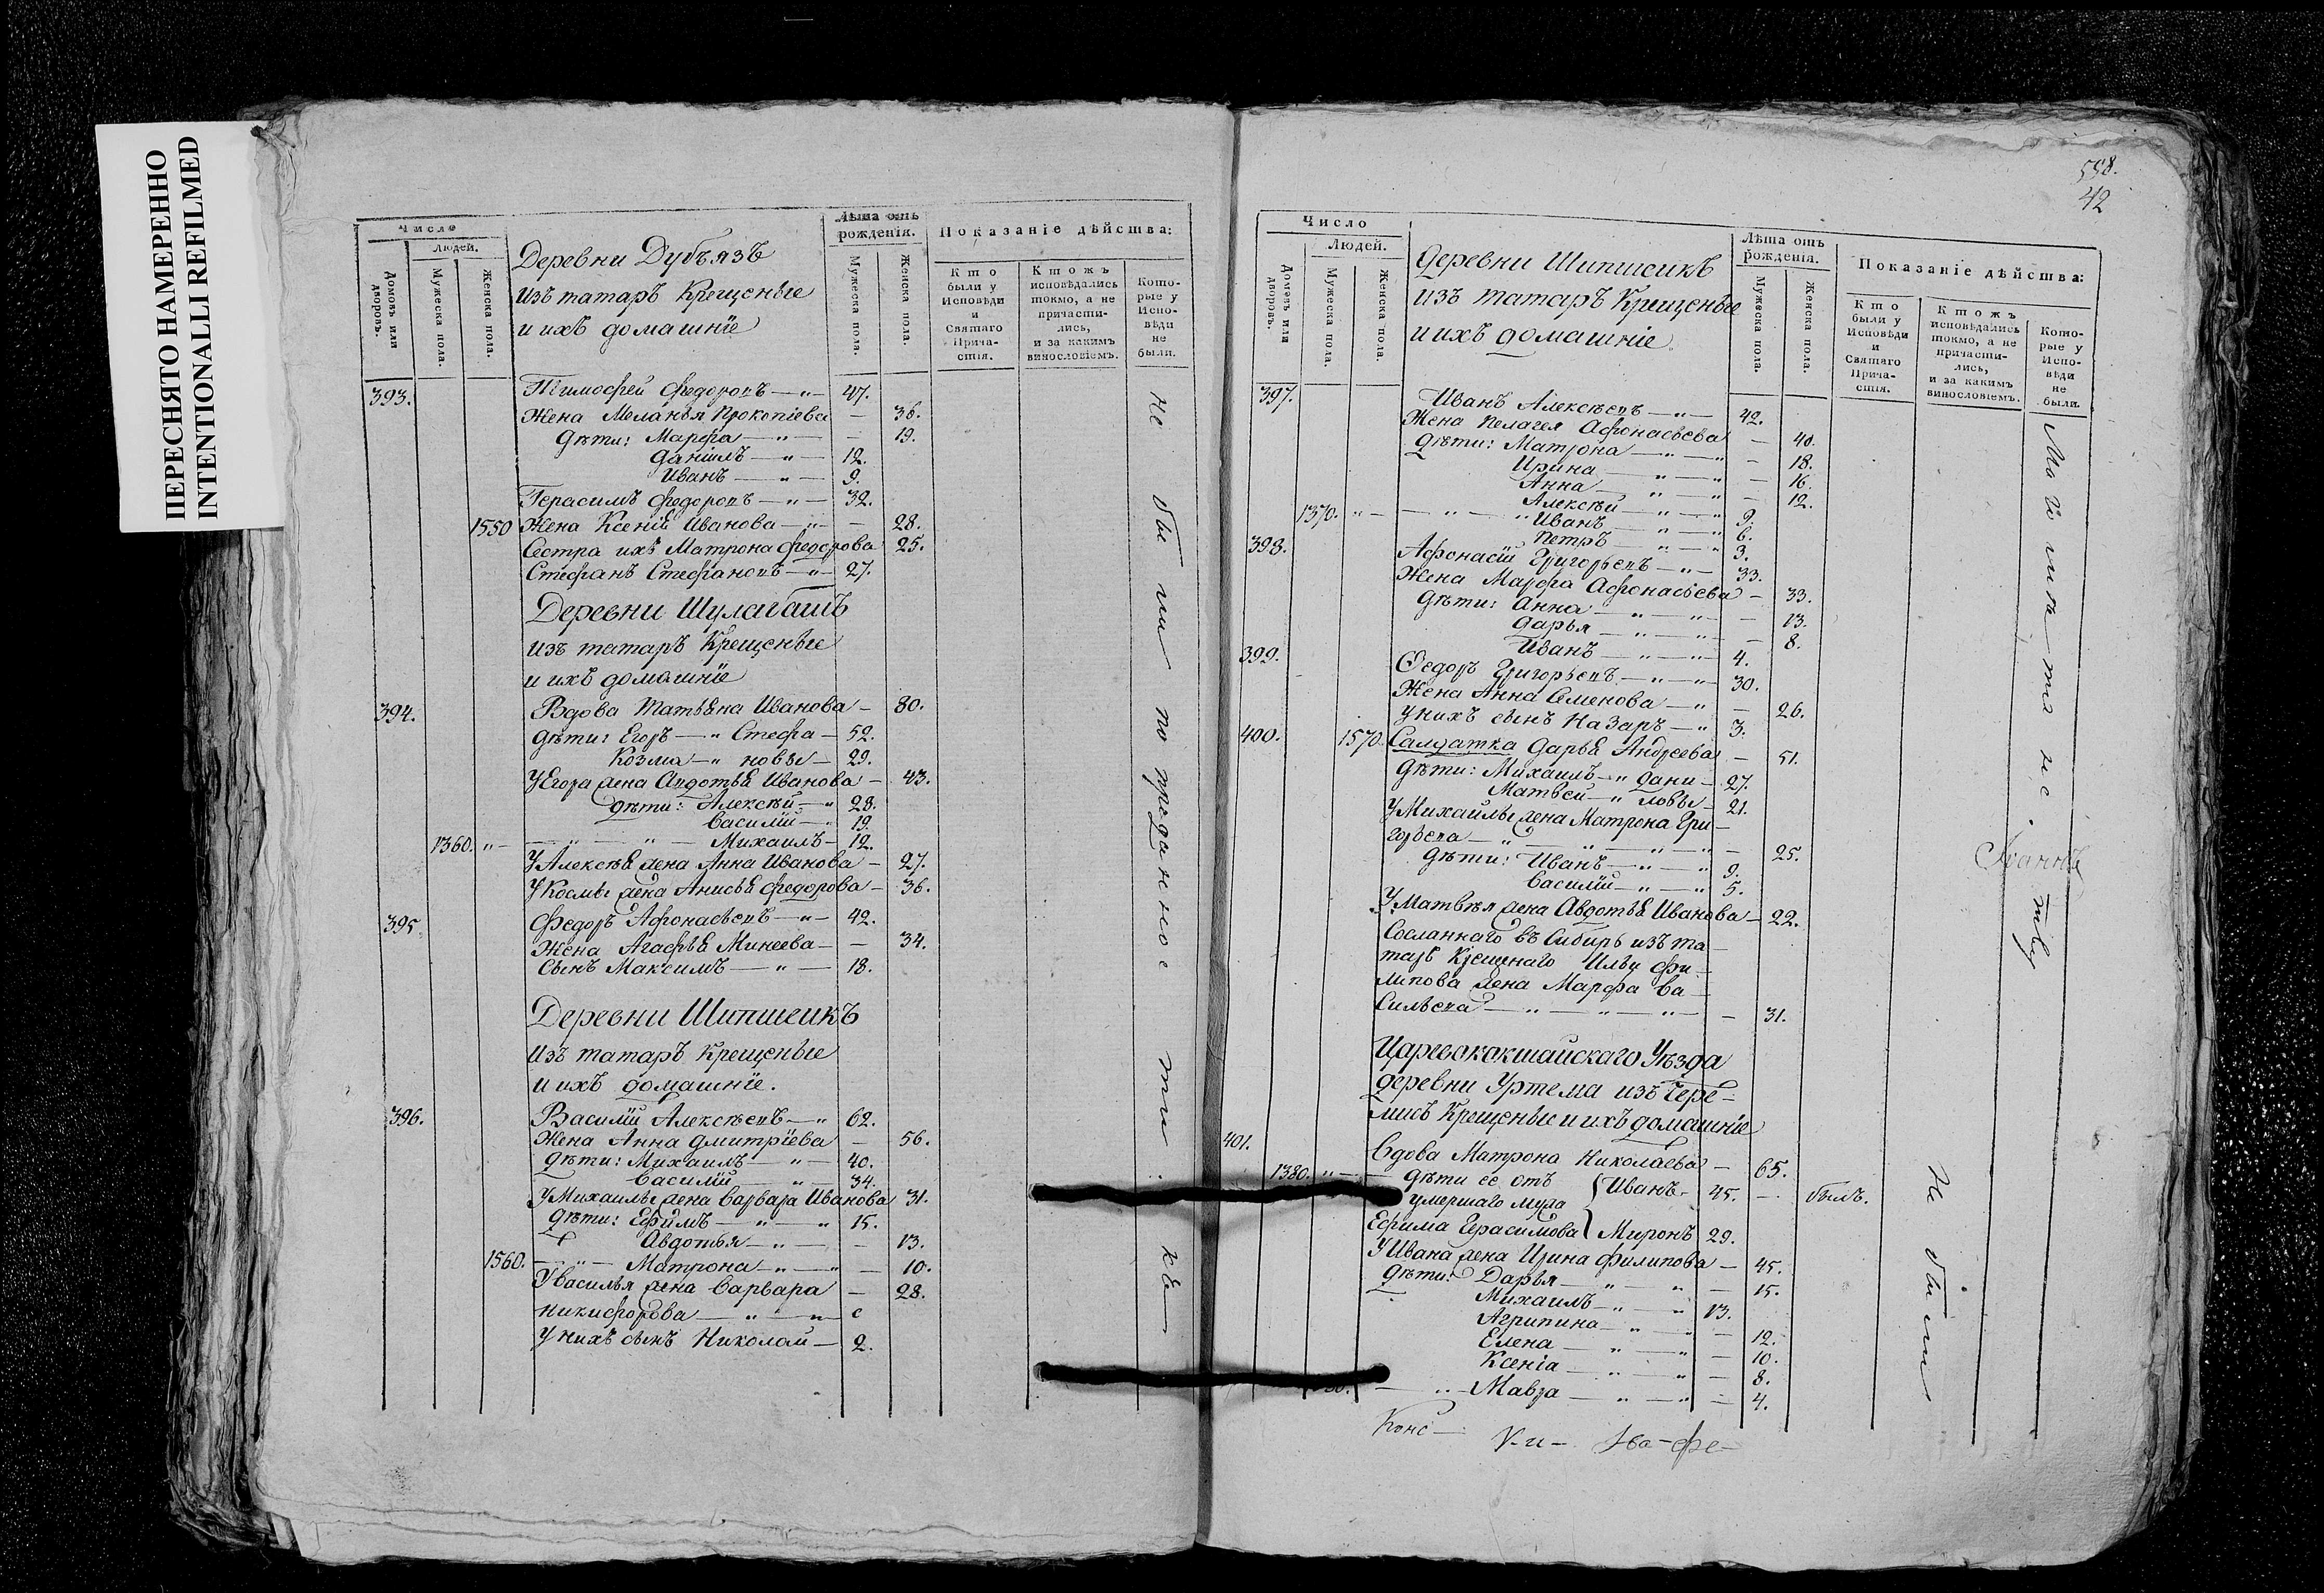 ПЕРЕСНЯТО НАМЕРЕННО
INTENTIONALLI REFILMED
Число
Людей.
Домовъ или дворовъ.
Мужеска пола.
Женска пола.
Деревни Дубъязъ
Изъ татаръ Крещеные
и ихъ домашнїе
Лѣта отъ рожденія.
Мужеска пола.
Женска пола.
Показаніе дѣйства:
Кто были у Исповѣди и Святаго Причастія.
Ктожъ исповѣдались токмо, а не причастились, и за какимъ винословіемъ.
Которые у Исповѣди не были.
393. Тимофей Федоровъ — „ — 47.
Жена Меланья Прокопіева — 36.
Дѣти: Марфа — „ — — 19.
Данiилъ — „ — 12.
Иванъ — „ — 9.
Герасимъ Федоровъ — „ — 32.
1550 Жена Ксенiя Иванова — „ — — 28.
Сестра ихъ Матрона Федорова 25.
Стефанъ Стефановъ — „ — 27.
Деревни Шулабашъ
Изъ татаръ Крещеные
и ихъ домашнїе
394. Вдова Татьяна Иванова — 80.
Дѣти: Егоръ — „ Стефа — 52.
Козма — „ новы — 29.
У Егора жена Авдотья Иванова — 43.
Дѣти: Алексѣй — „ 28.
Василій — „ 19.
1360. „ — — „ — „ — Михаилъ — 12.
У Алексѣя жена Анна Иванова — 27.
У Космы жена Анисья Федорова — 36.
395 Федоръ Афонасьевъ — „ — 42.
Жена Агафья Минеева — — 34.
Сынъ Максимъ — „ — 18.
Деревни Шипшеикъ
Изъ татаръ Крещеные
и ихъ домашнїе.
396. Василій Алексѣевъ — „ 62.
Жена Анна Дмитрїева — 56.
Дѣти: Михаилъ — „ — 40.
Василій — „ 34.
У Михаилы жена Варвара Иванова 31.
Дѣти: Ефимъ — „ — „ 15.
Авдотья — „ — — 13.
1560. — „ — Матрона — „ — „ — 10.
У Василья жена Варвара — 28.
Никифорова — „ — „
У нихъ сынъ Николай — 2.
не были по преданно
598.
42
Число
Людей.
Домовъ или дворовъ.
Мужеска пола.
Женска пола.
Деревни Шипшеикъ
изъ татаръ Крещеные
и ихъ домашнїе
Лѣта отъ рожденія.
Мужеска пола.
Женска пола.
Показаніе дѣйства:
Кто были у Исповѣди и Святаго Причастія.
Ктожъ исповѣдались токмо, а не причастились, и за какимъ винословіемъ.
Которые у Исповѣди не были.
397. Иванъ Алексѣевъ — „ — 42.
Жена Пелагея Афонасьева — 40.
Дѣти: Матрона — „ — „ — 18.
Ирина — „ — „ — 16.
Анна — „ — „ — 12.
Алексѣй — „ — „ 9.
1370. „ — — „ — „ Иванъ — „ — „ 6.
Петръ — „ — „ 3.
398. Афонасїй Григорьевъ — „ — 33.
Жена Марфа Афонасьева — 33.
Дѣти: Анна — „ — „ — 13.
Дарья — „ — „ — 8.
Иванъ — „ — „ 4.
399. Ѳедоръ Григорьевъ — „ — „ 30.
Жена Анна Семенова — „ — 26.
У нихъ сынъ Назаръ — „ 3.
400. 1570. Салдатка Дарья Андреева — 51.
Дѣти: Михаилъ — „ Дани — 27.
Матвей — „ ловы — 21.
У Михайлы жена Матрона Гри —
горьева — „ — „ — „ — „ — 25.
Дѣти: Иванъ — „ — „ 9.
Василїй — „ — „ 5.
У Матвѣя жена Авдотья Иванова — 22.
Сосланнаго въ Сибирь изъ та —
таръ Крещенаго Ильи Фи —
липова жена Марфа Ва —
сильева — „ — „ — „ — — 31.
Царевококшайскаго Уѣзда
деревни Уртема изъ Чере —
мисъ Крещеные и ихъ домашнїе
401. Вдова Матрона Николаева — 65.
1380. „ — — Дѣти ее отъ { Иванъ — 45. — былъ.
умершаго мужа
Ефима Герасимова { Миронъ 29.
У Ивана жена Ирина Филипова — 45.
Дѣти: Дарья — „ — „ — 15.
Михаилъ — „ — „ 13.
Агрипина — „ — „ — 12.
Елена — „ — „ — 10.
Ксенїа — „ — „ — 8.
— „ — Мавра — „ — „ — 4.
Іоаннъ
Не были